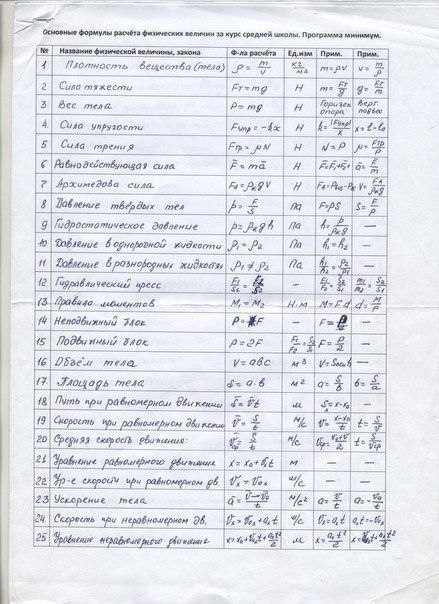 Основные формулы расчёта физических величин за курс средней школы. Программа минимум.
№ Название физической величины, закона Ф-ла расчёта Ед.изм Прим. Прим.
1 Плотность вещества (тела) ρ = m/V кг/м³ m = ρV V = m/ρ
2 Сила тяжести Fт = mg Н m = Fт/g g = Fт/m
3 Вес тела P = mg Н Горизон. опора Верт. подвес
4. Сила упругости Fупр = -kx Н k = |Fупр|/x x = l - l₀
5 Сила трения Fтр = μN Н N = P μ = Fтр/N
6 Равнодействующая сила F̄ = mā Н F̄ = F̄₁ + F̄₂ ā = F̄/m
7 Архимедова сила FA = ρж g V Н FA = Pвоз - Pж V = FA/ρж g
8 Давление твёрдых тел p = F/S Па F = pS S = F/p
9 Гидростатическое давление p = ρж g h Па h = p/ρж g —
10 Давление в однородной жидкости p₁ = p₂ Па h₁ = h₂ —
11 Давление в разнородных жидкостях ρ₁ ≠ ρ₂ Па h₁/h₂ = ρ₂/ρ₁ —
12 Гидравлический пресс F₁/S₁ = F₂/S₂ — F₁/F₂ = S₁/S₂ m₁/m₂ = S₂/S₁
13 Правила моментов M₁ = M₂ Н·м M = F·d d = M/F
14 Неподвижный блок P = F — F = P —
15 Подвижный блок P = 2F F = P/2 —
16 Объём тела V = abc м³ V = Sосн h —
17 Площадь тела S = a·b м² a = S/b b = S/a
18 Путь при равномерном движении S̄ = v̄t м S = x - x₀ —
19 Скорость при равномерном движении v̄ = S̄/t м/с V = x-x₀/t t = S/v
20 Средняя скорость движения: v̄ср = S̄/t м/с vср = v₀+v/2 t = S/vср
21 Уравнение равномерного движения x = x₀ + vₓt м — —
22 Ур-е скорости при равномерном дв. vₓ = v₀ₓ м/с — —
23 Ускорение тела ā = v̄-v̄₀/t м/с² a = v/t a = -v₀/t
24. Скорость при неравномерном дв. vₓ = v₀ₓ + aₓt м/с vₓ = aₓt aₓt = -v₀ₓ
25 Уравнение неравномерного движения x = x₀ + v₀ₓt + aₓt²/2 м x = aₓt²/2 x = v₀ₓt + aₓt²/2